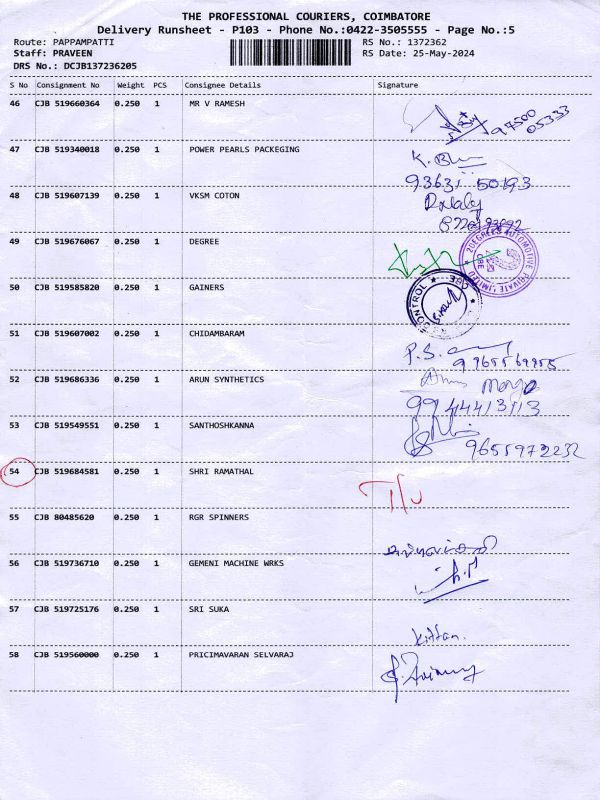 THE PROFESSIONAL COURIERS, COIMBATORE
Delivery Runsheet - P103 - Phone No.:0422-3505555 - Page No.:5
Route: PAPPAMPATTI RS No.: 1372362
Staff: PRAVEEN RS Date: 25-May-2024
DRS No.: DCJB137236205
S No Consignment No Weight PCS Consignee Details Signature
46 CJB 519660364 0.250 1 MR V RAMESH
97500
05333
47 CJB 519340018 0.250 1 POWER PEARLS PACKEGING K.
93631 50193
48 CJB 519607139 0.250 1 VKSM COTON
49 CJB 519676067 0.250 1 DEGREE
2DEGREES AUTOMOTIVE PRIVATE LIMITED
CBE
50 CJB 519585820 0.250 1 GAINERS
CONTROL
CBE
51 CJB 519607002 0.250 1 CHIDAMBARAM P.S.
52 CJB 519686336 0.250 1 ARUN SYNTHETICS
99444413113
53 CJB 519549551 0.250 1 SANTHOSHKANNA
9655972232
54 CJB 519684581 0.250 1 SHRI RAMATHAL
T/U
55 CJB 80485620 0.250 1 RGR SPINNERS
56 CJB 519736710 0.250 1 GEMENI MACHINE WRKS
57 CJB 519725176 0.250 1 SRI SUKA
58 CJB 519560000 0.250 1 PRICIMAVARAN SELVARAJ